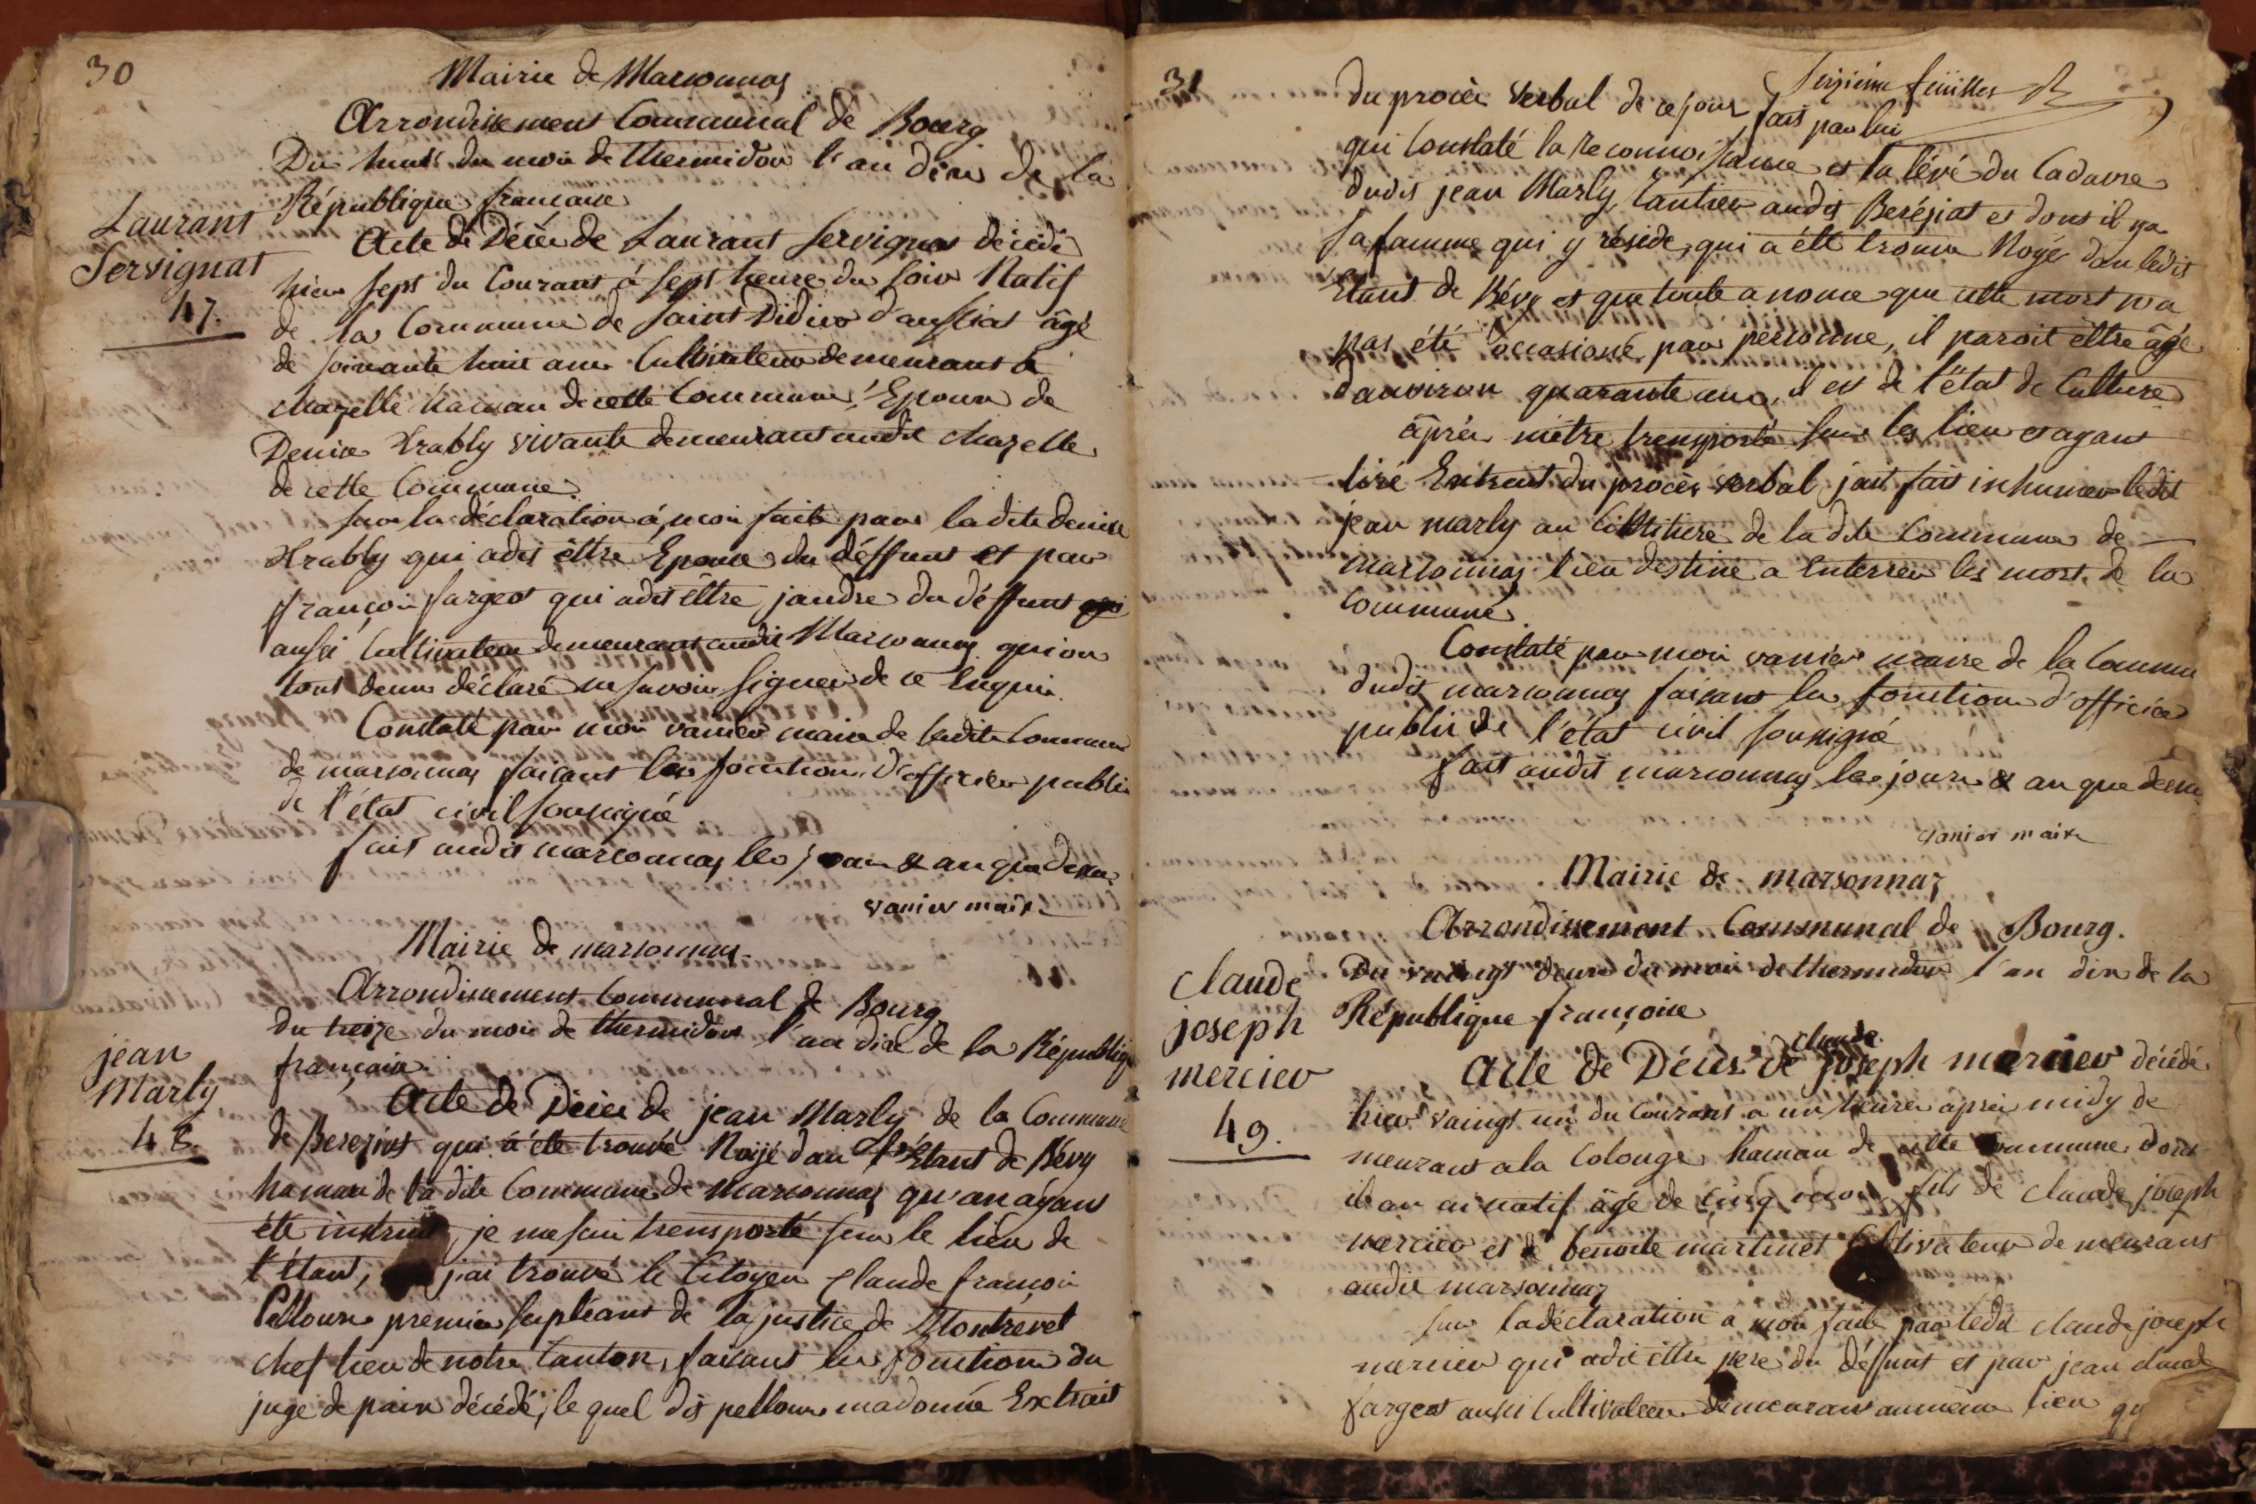 30
Mairie de Marsonnas
Arrondissement Communal de Bourg
Du huit du mois de thermidor l'an dix de la
République françoise
Laurant
Servignat
47.
Acte de Décès de Laurant Servignat décédé
hier sept du Courant à sept heure du soir Natif
de la Commune de Saint Didier d'aussiat âgé
de soixante huit ans Cultivateur demeurant à
chazelle hamau de cette Commune, Epoux de
Denise Trably vivante demeurant audit chazelle
de cette Commune.
sur la déclaration à moi faite par ladite denise
Trably qui adit êttre Epouse du déffunt et par
françois fargeot qui adit êttre jandre du déffunt
aussi Cultivateur demeurant audit Marsonnas qui on
tout deux déclaré ne savoir signer de ce Enquis
Constaté par moi vanier maire de ladite Commune
de marsonnas faisant les fonctions d'officier public
de l'état civil soussigné
fait audit marsonnas les jour & an que dessus
vanier maire
Mairie de marsonnas
Arrondissement Communal de Bourg
du treize du mois de thermidor l'an dix de la République
françoise
jean
Marly
48.
Acte de Décès de jean Marly de la Commune
de Bereziat qui à été trouvé Noyé dan l'Etant de Bévy
hamau de la dite Commune de Marsonnas qu'an ayant
été instruit, je me suis transporté sur le lieu de
l'étant, jai trouvé le Citoyen Claude françois
Pelloux premier supléant de la justice de Montrevel
chef lieu de notre Canton, faisant les fonctions du
juge de paix décédé, le quel dit pelloux madonné Extrait
31
Seizième feuillet
du procès verbal de ce jour fait par lui
qui Constaté la reconnoissance et la lévé du Cadavre
dudit jean Marly, Cantier audit Beréziat et dont il ya
sa famme qui y réside, qui a été trouvé Noyé dan ledit
Etant de Bévy et que toute anonce que cette mort n'a
pas été occasioné par personne, il paroit êttre âgé
d'anviron quarante ans, il es de l'état de Culture
âprès mètre transporté sur les lieu et ayant
tiré Extrait du procès verbal jait fait inhumer ledit
jean marly au Cimttiere de la dite Commune de
marsonnas lieu destiné a Enterrer les mort de la
Commune.
Constaté par moi vanier maire de la Commune
dudit marsonnas faisant la fonction d'officier
public de l'état civil soussigné
fait audit marsonnas les jour & an que dessus
vanier maire
Mairie de marsonnaz
Arrondissement Communal de Bourg.
Du vaingt deux du mois de thermidor l'an dix de la
République françoise
claude
joseph
mercier
49.
claude
Acte de Décès de joseph mercier décédé
hier vaingt un du Courant a un heure âprès midy de
meurant a la Colonge hamau de cette Commune dont
il an ai natif âgé de cinq mois fils de claude joseph
mercier et de benoite martinet Cultivateur demeurant
audit marsonnaz
sur la déclaration a moi faite par ledit claude joseph
mercier qui adit êttre pere du déffunt et par jean claude
fargeot aussi Cultivateur demeurant au même lieu qu